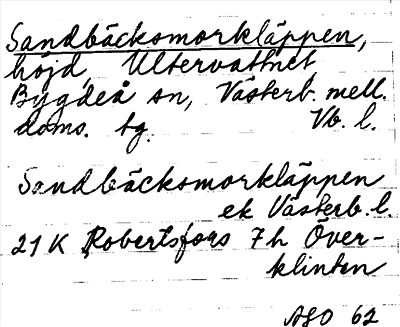 Sandbäcksmorkläppen,
höjd, Ultervattnet,
Bygdeå sn, Västerb. mell.
doms. tg. Vb. l.
Sandbäcksmorkläppen
ek Västerb. l.
21 K Robertsfors 7h Över-
klinten
ASO 62